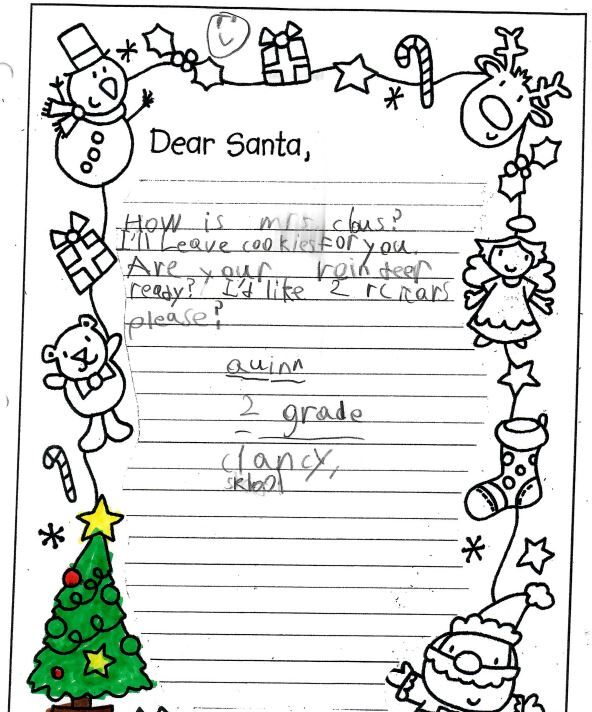 Dear Santa,
How is mrs. claus?
I'll Leave cookies for you.
Are your reindeer
ready? I'd like 2 rc cars
please?
quinn
2 grade
clancy,